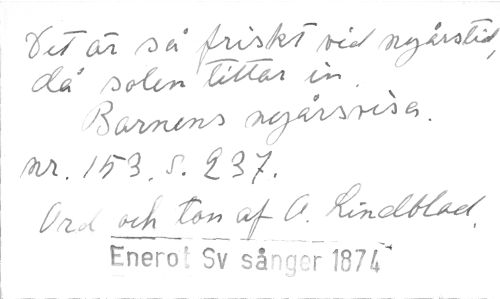 Det är så friskt vid nyårstid,
då solen tittar in.
Barnens nyårsvisa.
nr. 153. s. 237.
Ord och ton af A. Lindblad.
Enerot Sv sånger 1874